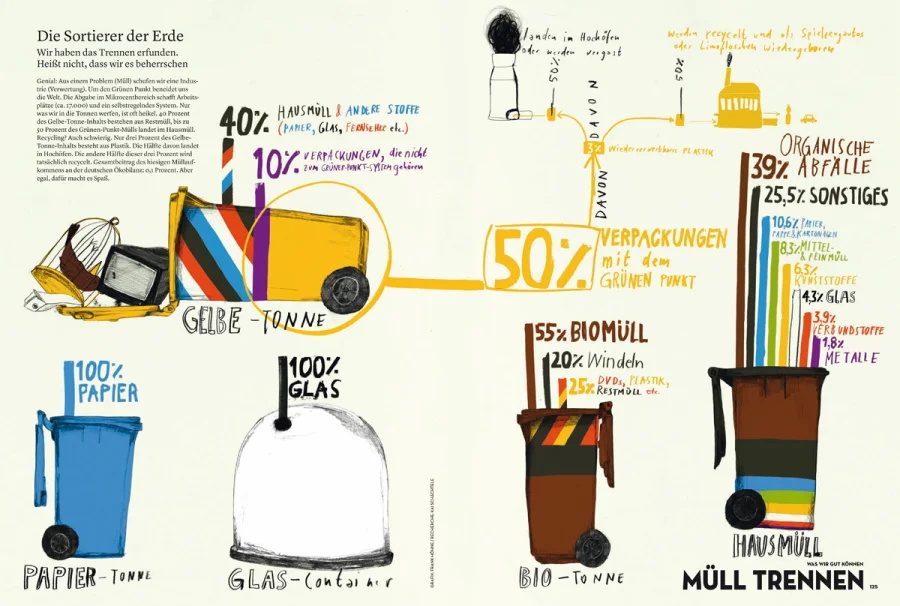 Die Sortierer der Erde
Wir haben das Trennen erfunden.
Heißt nicht, dass wir es beherrschen
Genial: Aus einem Problem (Müll) schufen wir eine Indus-
trie (Verwertung). Um den Grünen Punkt beneidet uns
die Welt. Die Abgabe im Mikrocentbereich schafft Arbeits-
plätze (ca. 17.000) und ein selbstregelndes System. Nur
was wir in die Tonnen werfen, ist oft heikel. 40 Prozent
des Gelbe-Tonne-Inhalts bestehen aus Restmüll, bis zu
50 Prozent des Grünen-Punkt-Mülls landet im Hausmüll.
Recycling? Auch schwierig. Nur drei Prozent des Gelbe-
Tonne-Inhalts besteht aus Plastik. Die Hälfte davon landet
in Hochöfen. Die andere Hälfte dieser drei Prozent wird
tatsächlich recycelt. Gesamtbeitrag des hiesigen Müllauf-
kommens an der deutschen Ökobilanz: 0,1 Prozent. Aber
egal, dafür macht es Spaß.
40% HAUSMÜLL & ANDERE STOFFE
(PAPIER, GLAS, FERNSEHER etc.)
10% VERPACKUNGEN, die nicht
ZUM GRÜNER-PUNKT-SYSTEM gehören
GELBE-TONNE
landen in Hochöfen
oder werden vergast
50%
werden recycelt und als Spielzeugautos
oder Limoflaschen wiedergeboren
50%
DAVON
3% Wiederverwertbares PLASTIK
DAVON
50% VERPACKUNGEN
mit dem
GRÜNEN PUNKT
39% ORGANISCHE
ABFÄLLE
25,5% SONSTIGES
10,6% PAPIER,
PAPPE & KARTONAGEN
8,3% MITTEL-
& FEINMÜLL
6,3%
KUNSTSTOFFE
4,3% GLAS
3,9%
VERBUNDSTOFFE
1,8%
METALLE
HAUSMÜLL
100%
PAPIER
PAPIER-TONNE
100%
GLAS
GLAS-Container
55% BIOMÜLL
20% Windeln
25% DVDs, PLASTIK,
RESTMÜLL etc.
BIO-TONNE
WAS WIR GUT KÖNNEN
MÜLL TRENNEN